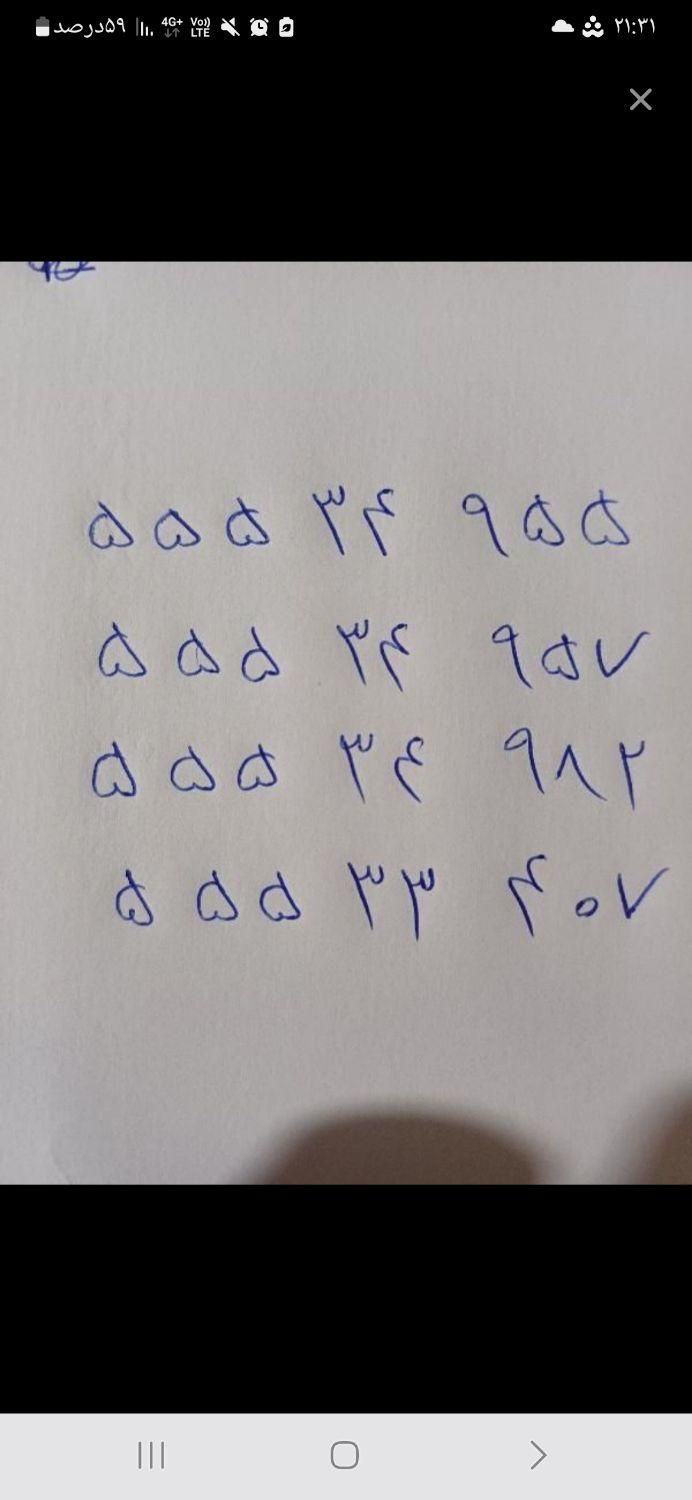 ۵۹درصد 4G+ Vo)) LTE ۲۱:۳۱
۵۵۵ ۳۴ ۹۵۵
۵۵۵ ۳۴ ۹۵۷
۵۵۵ ۳۴ ۹۸۲
۵۵۵ ۳۳ ۴۰۷